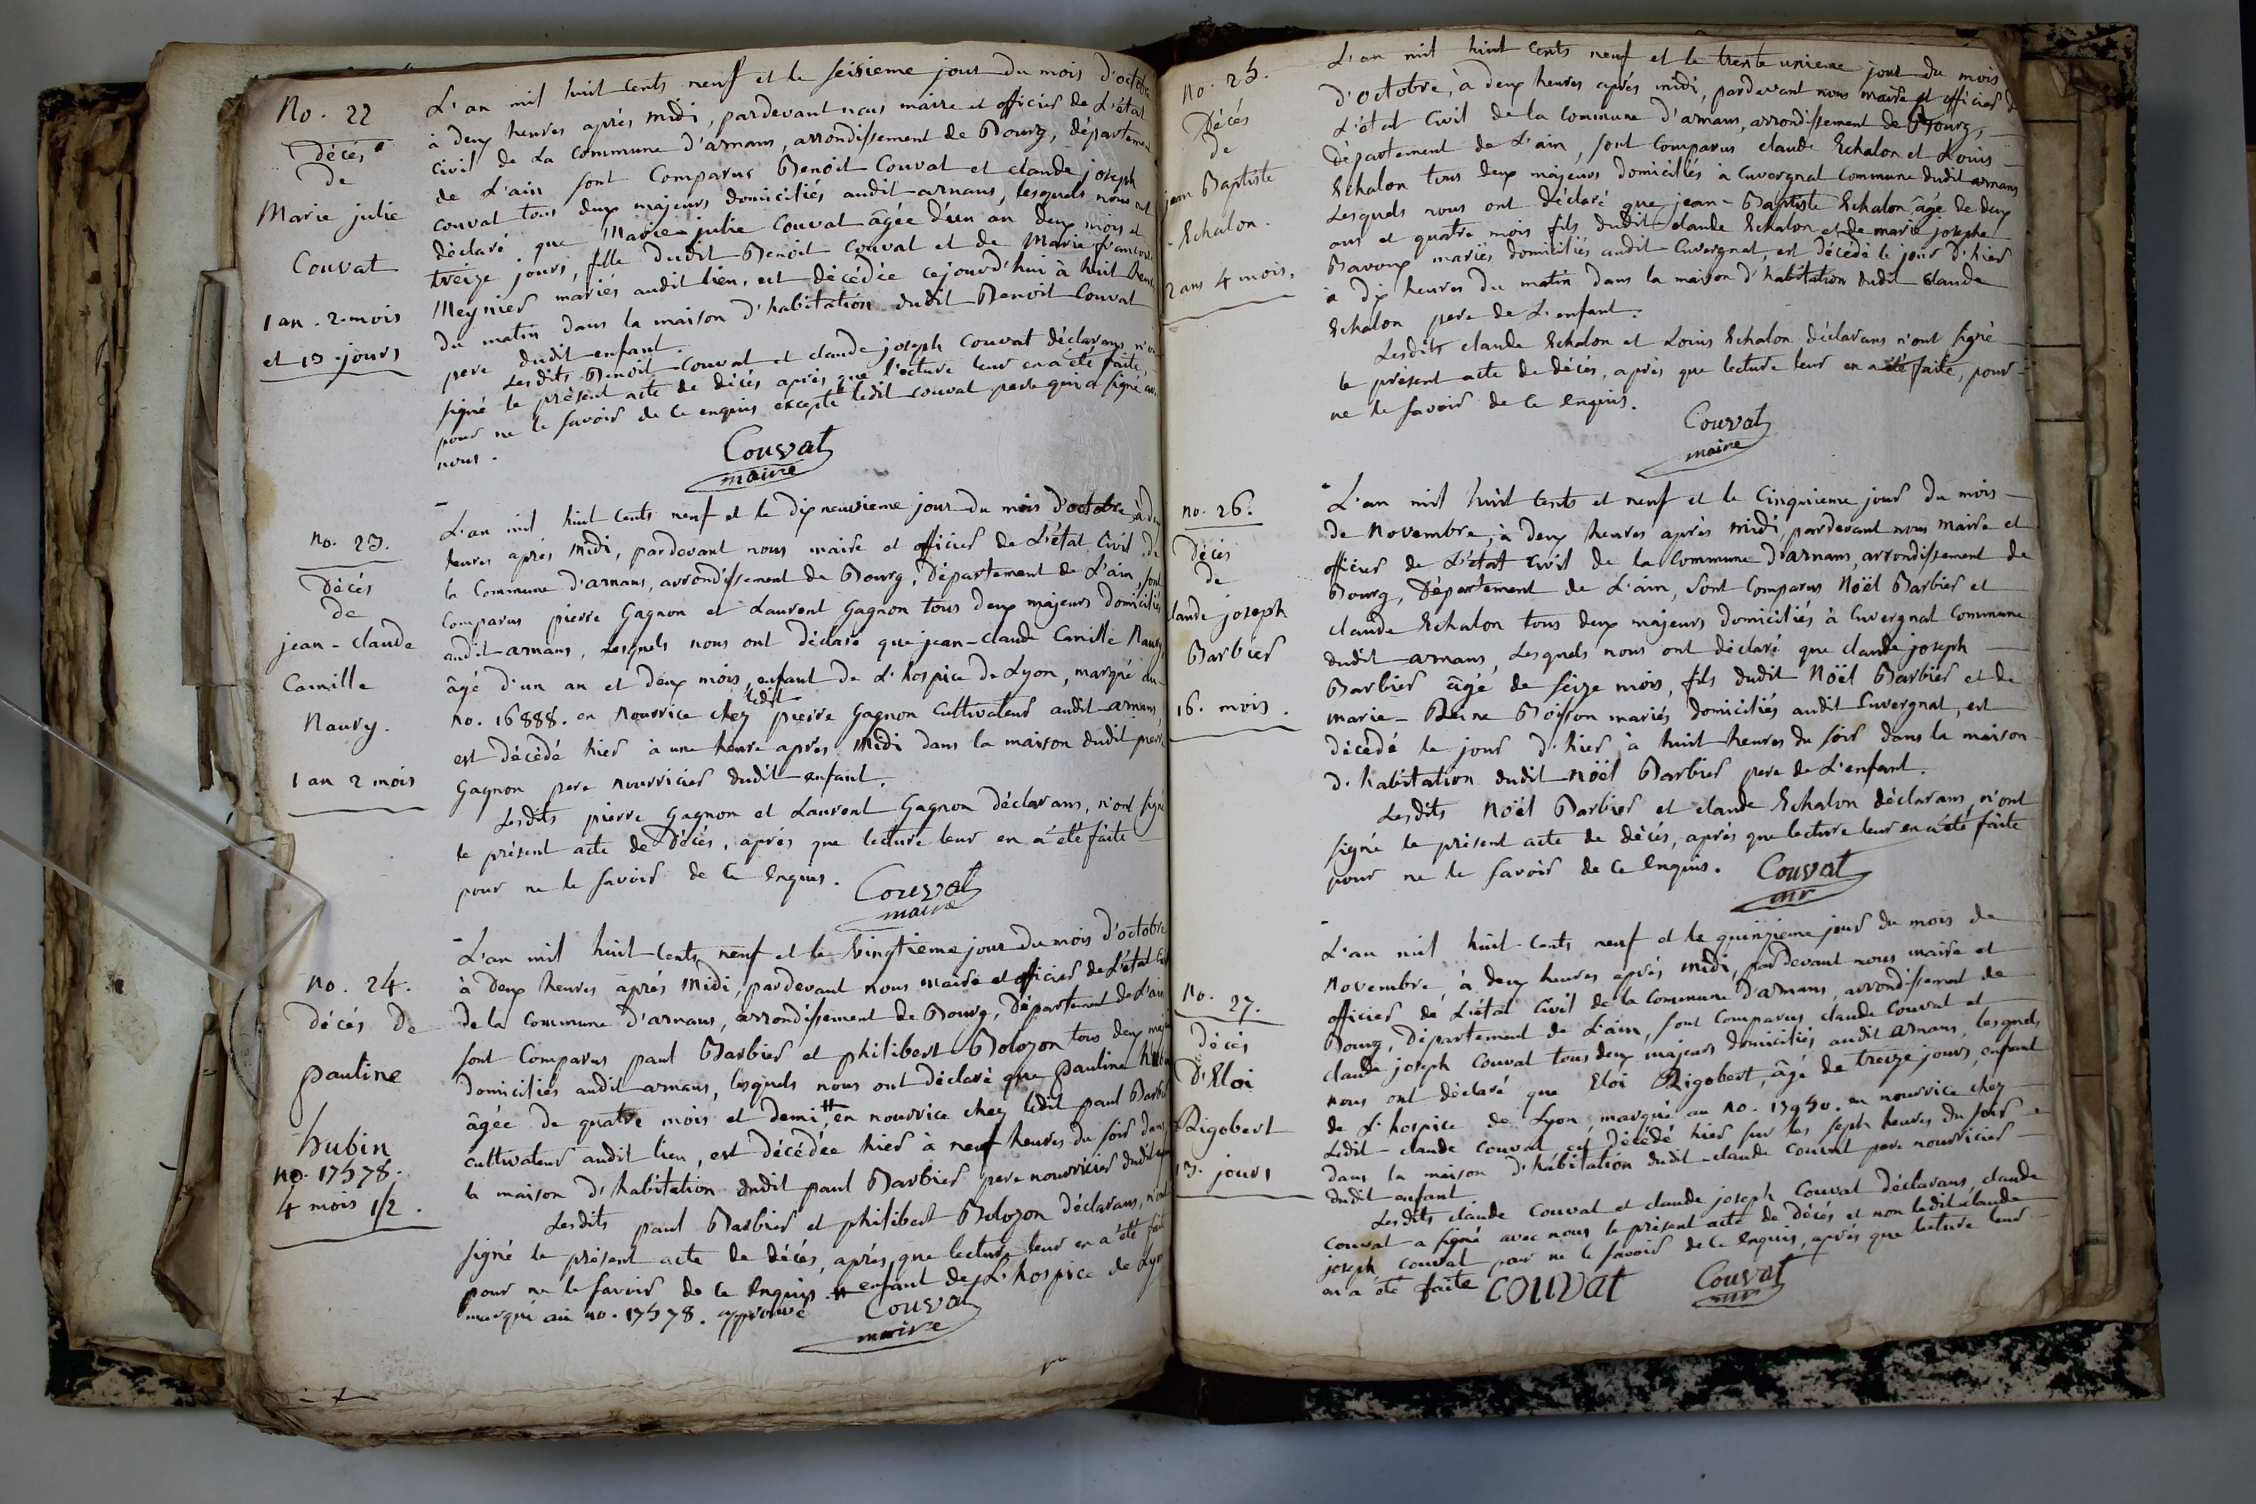 No. 22
Décés
de
Marie julie
Couvat
1 an. 2. mois
et 13 jours
L'an mil huit cents neuf et le seisieme jour du mois d'octobre
à deux heures aprés midi, pardevant nous maire et officier de L'état
civil de la commune d'arnans, arrondissement de Bourg, département
de L'ain sont Comparus Benoit Couvat et claude joseph
couvat tous deux majeurs domiciliés audit arnans, lesquels nous ont
déclaré que Marie julie Couvat âgée d'un an deux mois et
treize jours, fille dudit Benoit Couvat et de Marie françoise
Meynier mariés audit lieu, est décédée cejourd'hui à huit heures
du matin dans la maison d'habitation dudit Benoit Couvat
pere dudit enfant.
Lesdits Benoit Couvat et claude joseph Couvat déclarans n'ont
signé le présent acte de décés aprés que lecture leur en a été faite,
pour ne le savoir de ce enquis excepté ledit couvat pere qui a signé avec
nous.
Couvat
maire
no. 23.
Décés
de
jean-claude
Camille
Naury.
1 an 2 mois
L'an mil huit cents neuf et le dix neuvieme jour du mois d'octobre à deux
heures aprés midi, pardevant nous maire et officier de L'état civil de
la Commune d'arnans, arrondissement de Bourg, département de L'ain, sont
Comparus pierre Gagnon et Laurent Gagnon tous deux majeurs domiciliés
audit arnans, Lesquels nous ont déclaré que jean-claude Camille Naury,
âgé d'un an et deux mois, enfant de L'hospice de Lyon, marqué au
no. 16888. en nourrice chez ledit pierre Gagnon cultivateur audit arnans,
est décédé hier à une heure aprés midi dans la maison dudit pierre
Gagnon pere nourricier dudit enfant.
Lesdits pierre Gagnon et Laurent Gagnon déclarans, n'ont signé
le présent acte de Décés, aprés que lecture leur en a été faite
pour ne le savoir de ce enquis.
Couvat
maire
no. 24.
décés de
pauline
hubin
no. 17578.
4 mois 1/2.
L'an mil huit cents neuf et le vingtieme jour du mois d'octobre
à deux heures aprés midi, pardevant nous maire et officier de L'état civil
de la commune d'arnans, arrondissement de Bourg, Département de L'ain
sont Comparus paul Barbier et philibert Bolozon tous deux majeurs
domiciliés audit arnans, lesquels nous ont déclaré que pauline hubin
âgée de quatre mois et demi, # en nourrice chez ledit paul Barbier
cultivateur audit lieu, est décédée hier à neuf heures du soir dans
la maison d'habitation dudit paul Barbier pere nourricier dudit enfant
Lesdits paul Barbier et philibert Bolozon déclarans, n'ont
signé le présent acte de décés, aprés que lecture leur en a été faite
pour ne le savoir de ce enquis. # enfant de L'hospice de Lyon
marqué au no. 17578. approuvé
Couvat
maire
no. 25.
Décés
de
jean Baptiste
Echalon.
2 ans 4 mois.
L'an mil huit cents neuf et le trente unieme jour du mois
d'octobre, à deux heures aprés midi, pardevant nous maire et officier de
L'état civil de la commune d'arnans, arrondissement de Bourg,
département de L'ain, sont Comparus claude Echalon et Louis
Echalon tous deux majeurs domiciliés à Cuvergnat Commune dudit arnans
Lesquels nous ont déclaré que jean-Baptiste Echalon âgé de deux
ans et quatre mois fils dudit claude Echalon et de marie josephe
Bavoux mariés domiciliés audit Cuvergnat, est décédé le jour d'hier
à dix heures du matin dans la maison d'habitation dudit claude
Echalon pere de L'enfant.
Lesdits claude Echalon et Louis Echalon déclarans n'ont signé
le présent acte de décés, aprés que lecture leur en a été faite, pour
ne le savoir de ce enquis.
Couvat
maire
no. 26.
Décés
de
claude joseph
Barbier
16. mois.
L'an mil huit cents et neuf et le Cinquieme jour du mois
de Novembre, à deux heures aprés midi, pardevant nous maire et
officier de L'état civil de la Commune d'arnans, arrondissement de
Bourg, Département de L'ain, sont Comparus Noël Barbier et
claude Echalon tous deux majeurs domiciliés à Cuvergnat Commune
dudit arnans, Lesquels nous ont déclaré que claude joseph
Barbier âgé de seize mois, fils dudit Noël Barbier et de
marie-Reine Poisson mariés domiciliés audit Cuvergnat, est
décédé le jour d'hier à huit heures du soir dans la maison
d'habitation dudit Noël Barbier pere de L'enfant.
Lesdits Noël Barbier et claude Echalon déclarans n'ont
signé le présent acte de décés, aprés que lecture leur en a été faite
pour ne le savoir de ce enquis.
Couvat
mr
No. 27.
Décés
D'Eloi
Rigobert
13. jours
L'an mil huit cents neuf et le quinzieme jour du mois de
Novembre, à deux heures aprés midi, pardevant nous maire et
officier de L'état civil de la commune d'arnans, arrondissement de
Bourg, Département de L'ain, sont Comparus claude Couvat et
claude joseph Couvat tous deux majeurs domiciliés audit arnans, lesquels
nous ont déclaré que Eloi Rigobert, âgé de treize jours, enfant
de L'hospice de Lyon, marqué au no. en nourrice chez
Ledit claude couvat est Décédé hier sur les sept heures du soir
dans la maison d'habitation dudit claude Couvat pere nourricier
dudit enfant
Lesdits claude Couvat et claude joseph Couvat déclarans, claude
couvat a signé avec nous le présent acte de décés et non ledit claude
joseph couvat pour ne le savoir de ce enquis, aprés que lecture leur
en a été faite
COUVAT
Couvat
mr